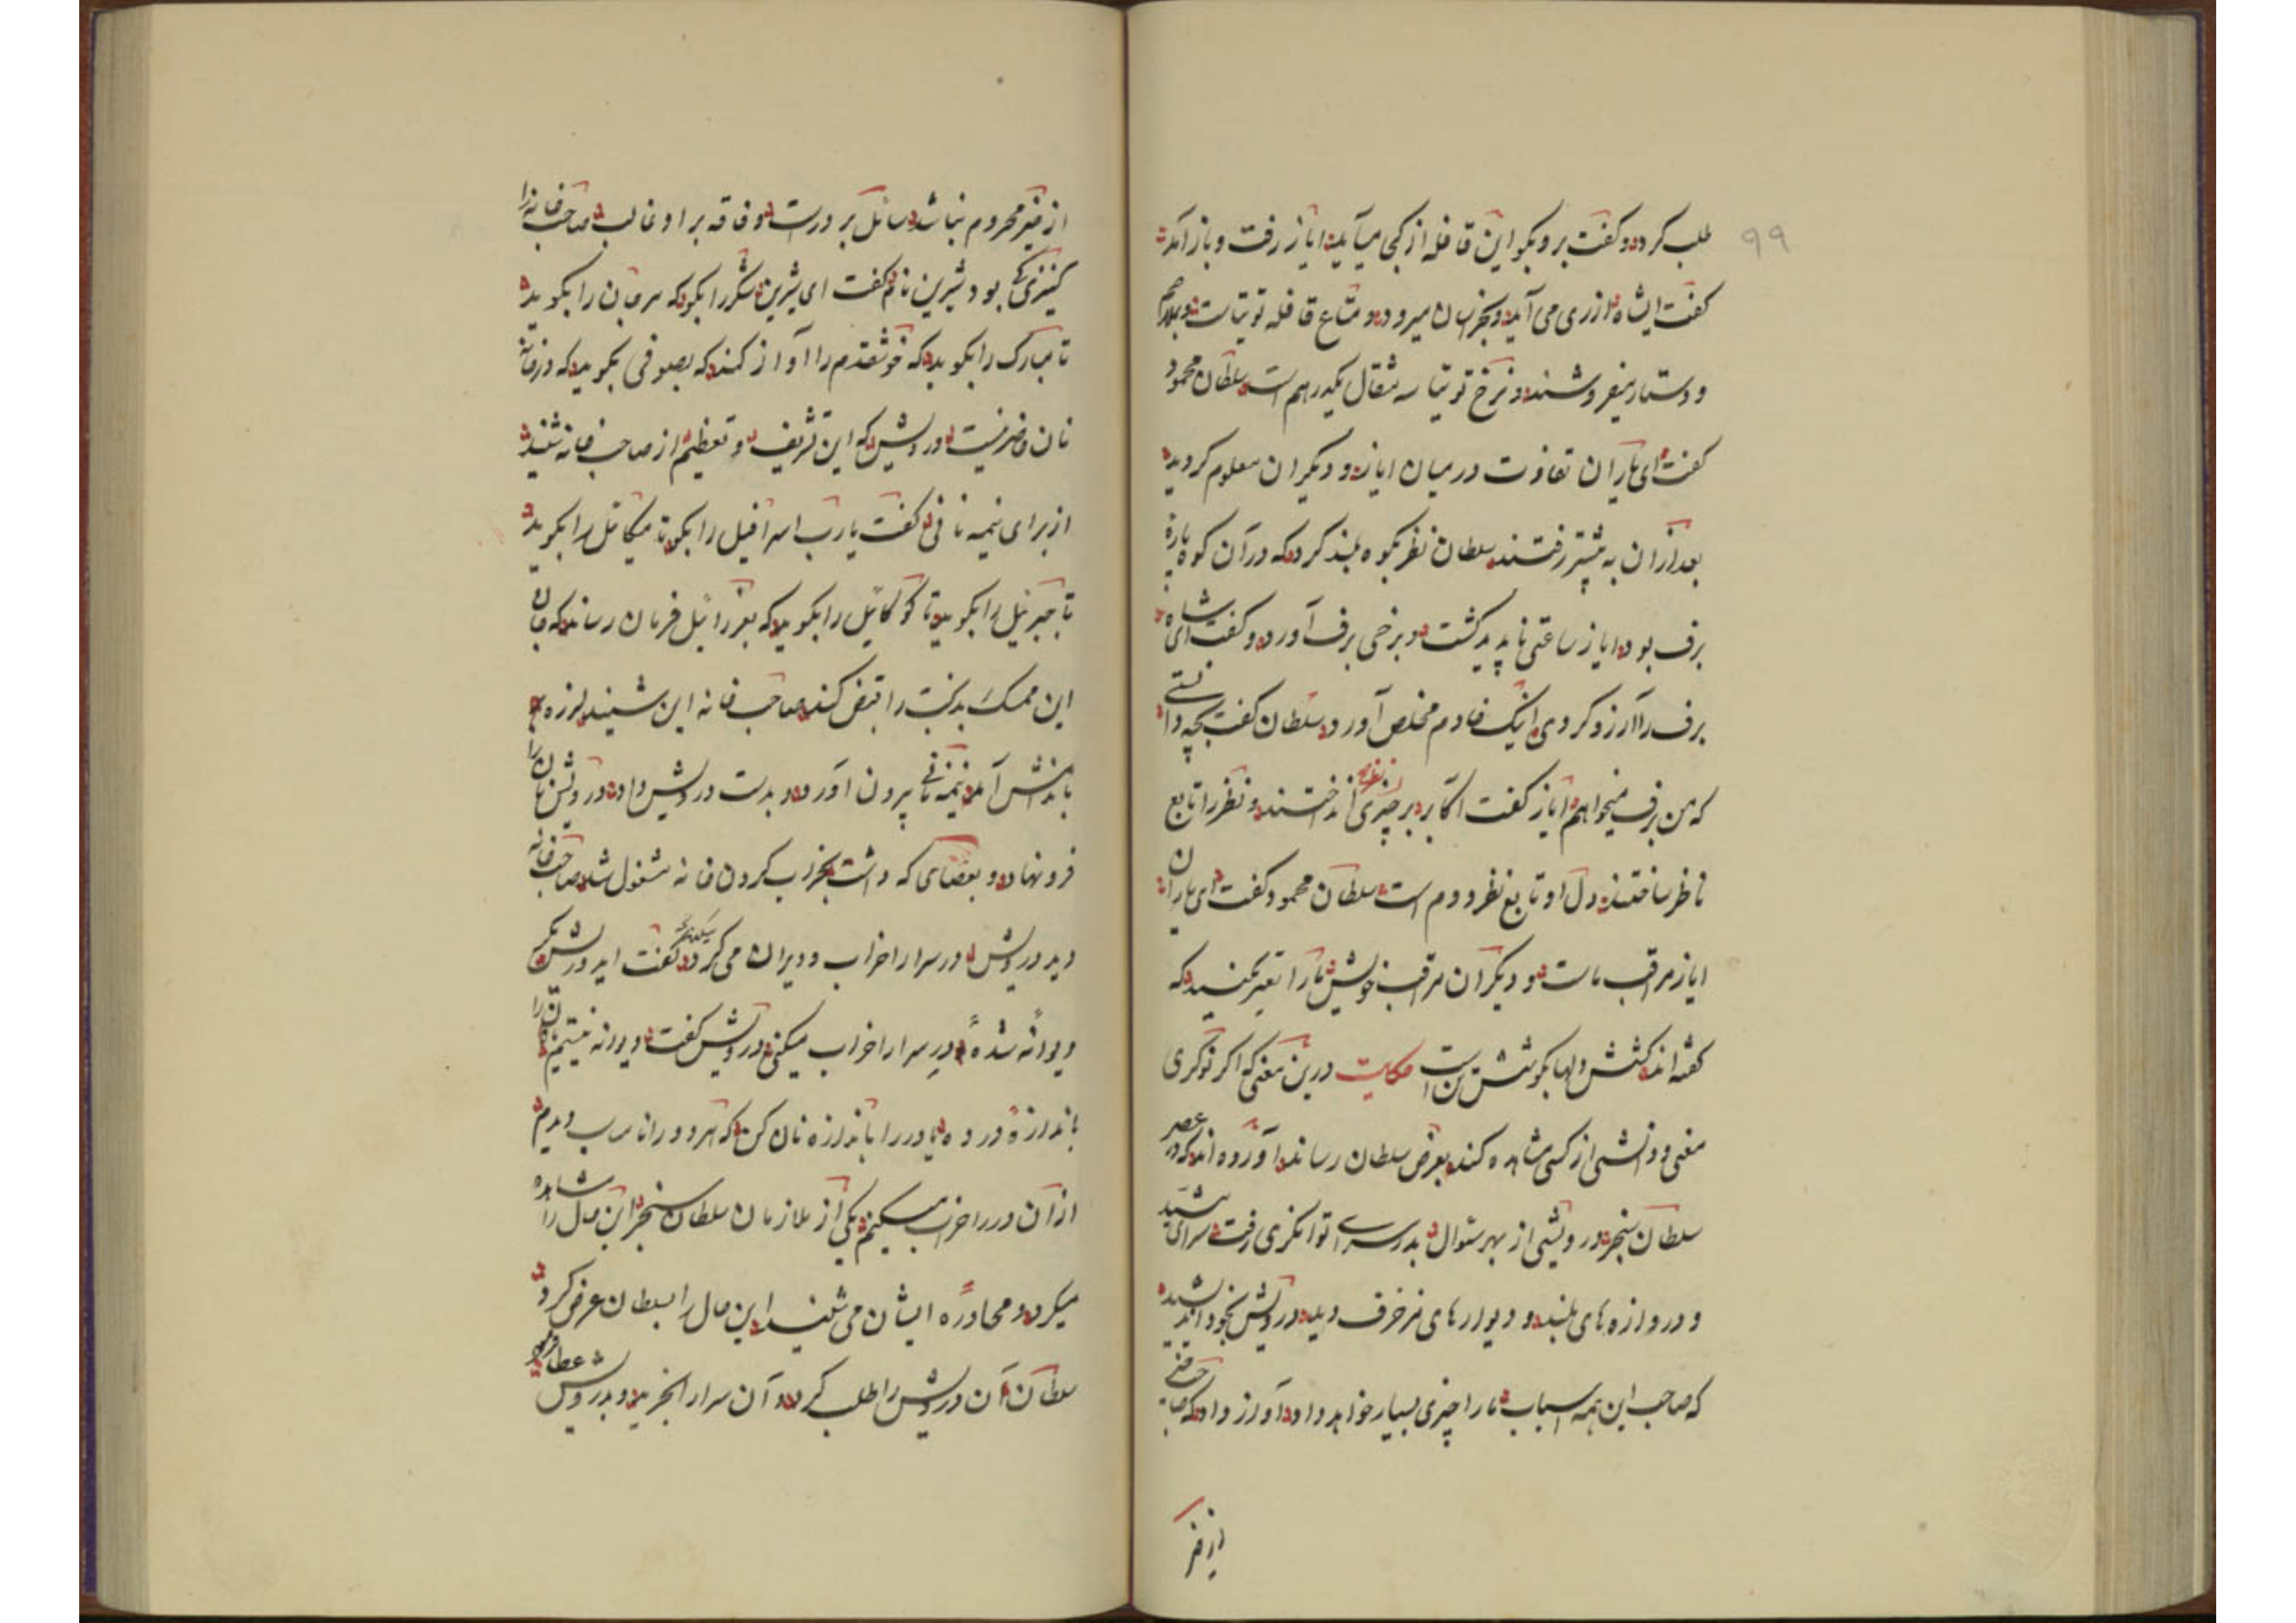 ۹۹
طلب کرد و گفت برو بگو این قافله از کجا میآید ایاز رفت و باز آمد
گفت ای شاه از ری می آید و بخراسان میرود و متاع قافله توتیاست و
و دستار میفروشند و نرخ توتیا سه مثقال بیکدرهم است سلطان محمود
گفت ای یاران تفاوت در میان ایاز و دیگران معلوم کردید
بعد از ان به پیشتر رفتند سلطان نظر بکوه بلند کرد که در آن کوه پارهٔ
برف بود ایاز ساعتی ناپدید گشت و برخی برف آورد و گفت ای شاه
برف را آرزو کردی اینک خادم مخلص آورد سلطان گفت بچه دانستی
که من برف میخواهم ایاز گفت اکابر بر چیزی نظر نمی انداختند و نظر را تابع
ناظر ساختند و دل او تابع نظر دوم است سلطان محمود گفت ای یاران
ایاز مراقب ماست و دیگران مراقب خویش ما را تعییر مکنید که
گفته اند کشش دلها بکوشش تن است حکایت درین معنی که اگر نوکری
معنی و دانشی از کسی مشاهده کند بعرض سلطان رساند آورده اند که در عصر
سلطان سنجر درویشی از بهر سئوال بدر سرای توانگری رفت سرای مشید
و دروازه های بلند و دیوارهای مزخرف دید درویش بخود اندیشید
که صاحب این همه اسباب ما را چیزی بسیار خواهد داد آواز داد که
از خیر
از خیر محروم نباشد سائل بر درست و فاقه بر او غالب صاحب خانه را
کنیزکی بود شیرین نام گفت ای شیرین شکر را بگو که مرجان را بگوید
تا مبارک را بگوید که خوشقدم را آواز کند که بصوفی بگوید که در خانه
نان حاضر نیست درویش که این تشریف و تعظیم از صاحب خانه شنید
از برای نیمه نانی گفت یا رب اسرافیل را بگو تا میکائل را بگوید
تا جبرئیل را بگوید تا کوکائیل را بگوید که بعزرائیل فرمان رساند که جان
این ممسک بدبخت را قبض کند صاحب خانه این شنید لرزه
باندامش آمد نیمه نانی بیرون آورد و بدست درویش داد درویش نان را
فرو نهاد و بعصای که داشت بخراب کردن خانه مشغول شد صاحب خانه
دید درویش در سرا را خراب و ویران می کرد گفت ای درویش مگر
دیوانه شدهٔ در سرا را خراب میکنی درویش گفت دیوانه نیستم نان را
باندازهٔ در ده یا در را باندازه نان کن که هر دو را نا مناسب دیدم
از آن در را خراب میکنم یکی از ملازمان سلطان سنجر این حال را مشاهده
میکرد و محاورهٔ ایشان می شنید این حال را بسلطان عرض کرد
سلطان آن درویش را طلب کرد و آن سرا را بخرید و بدرویش عطا فرمود